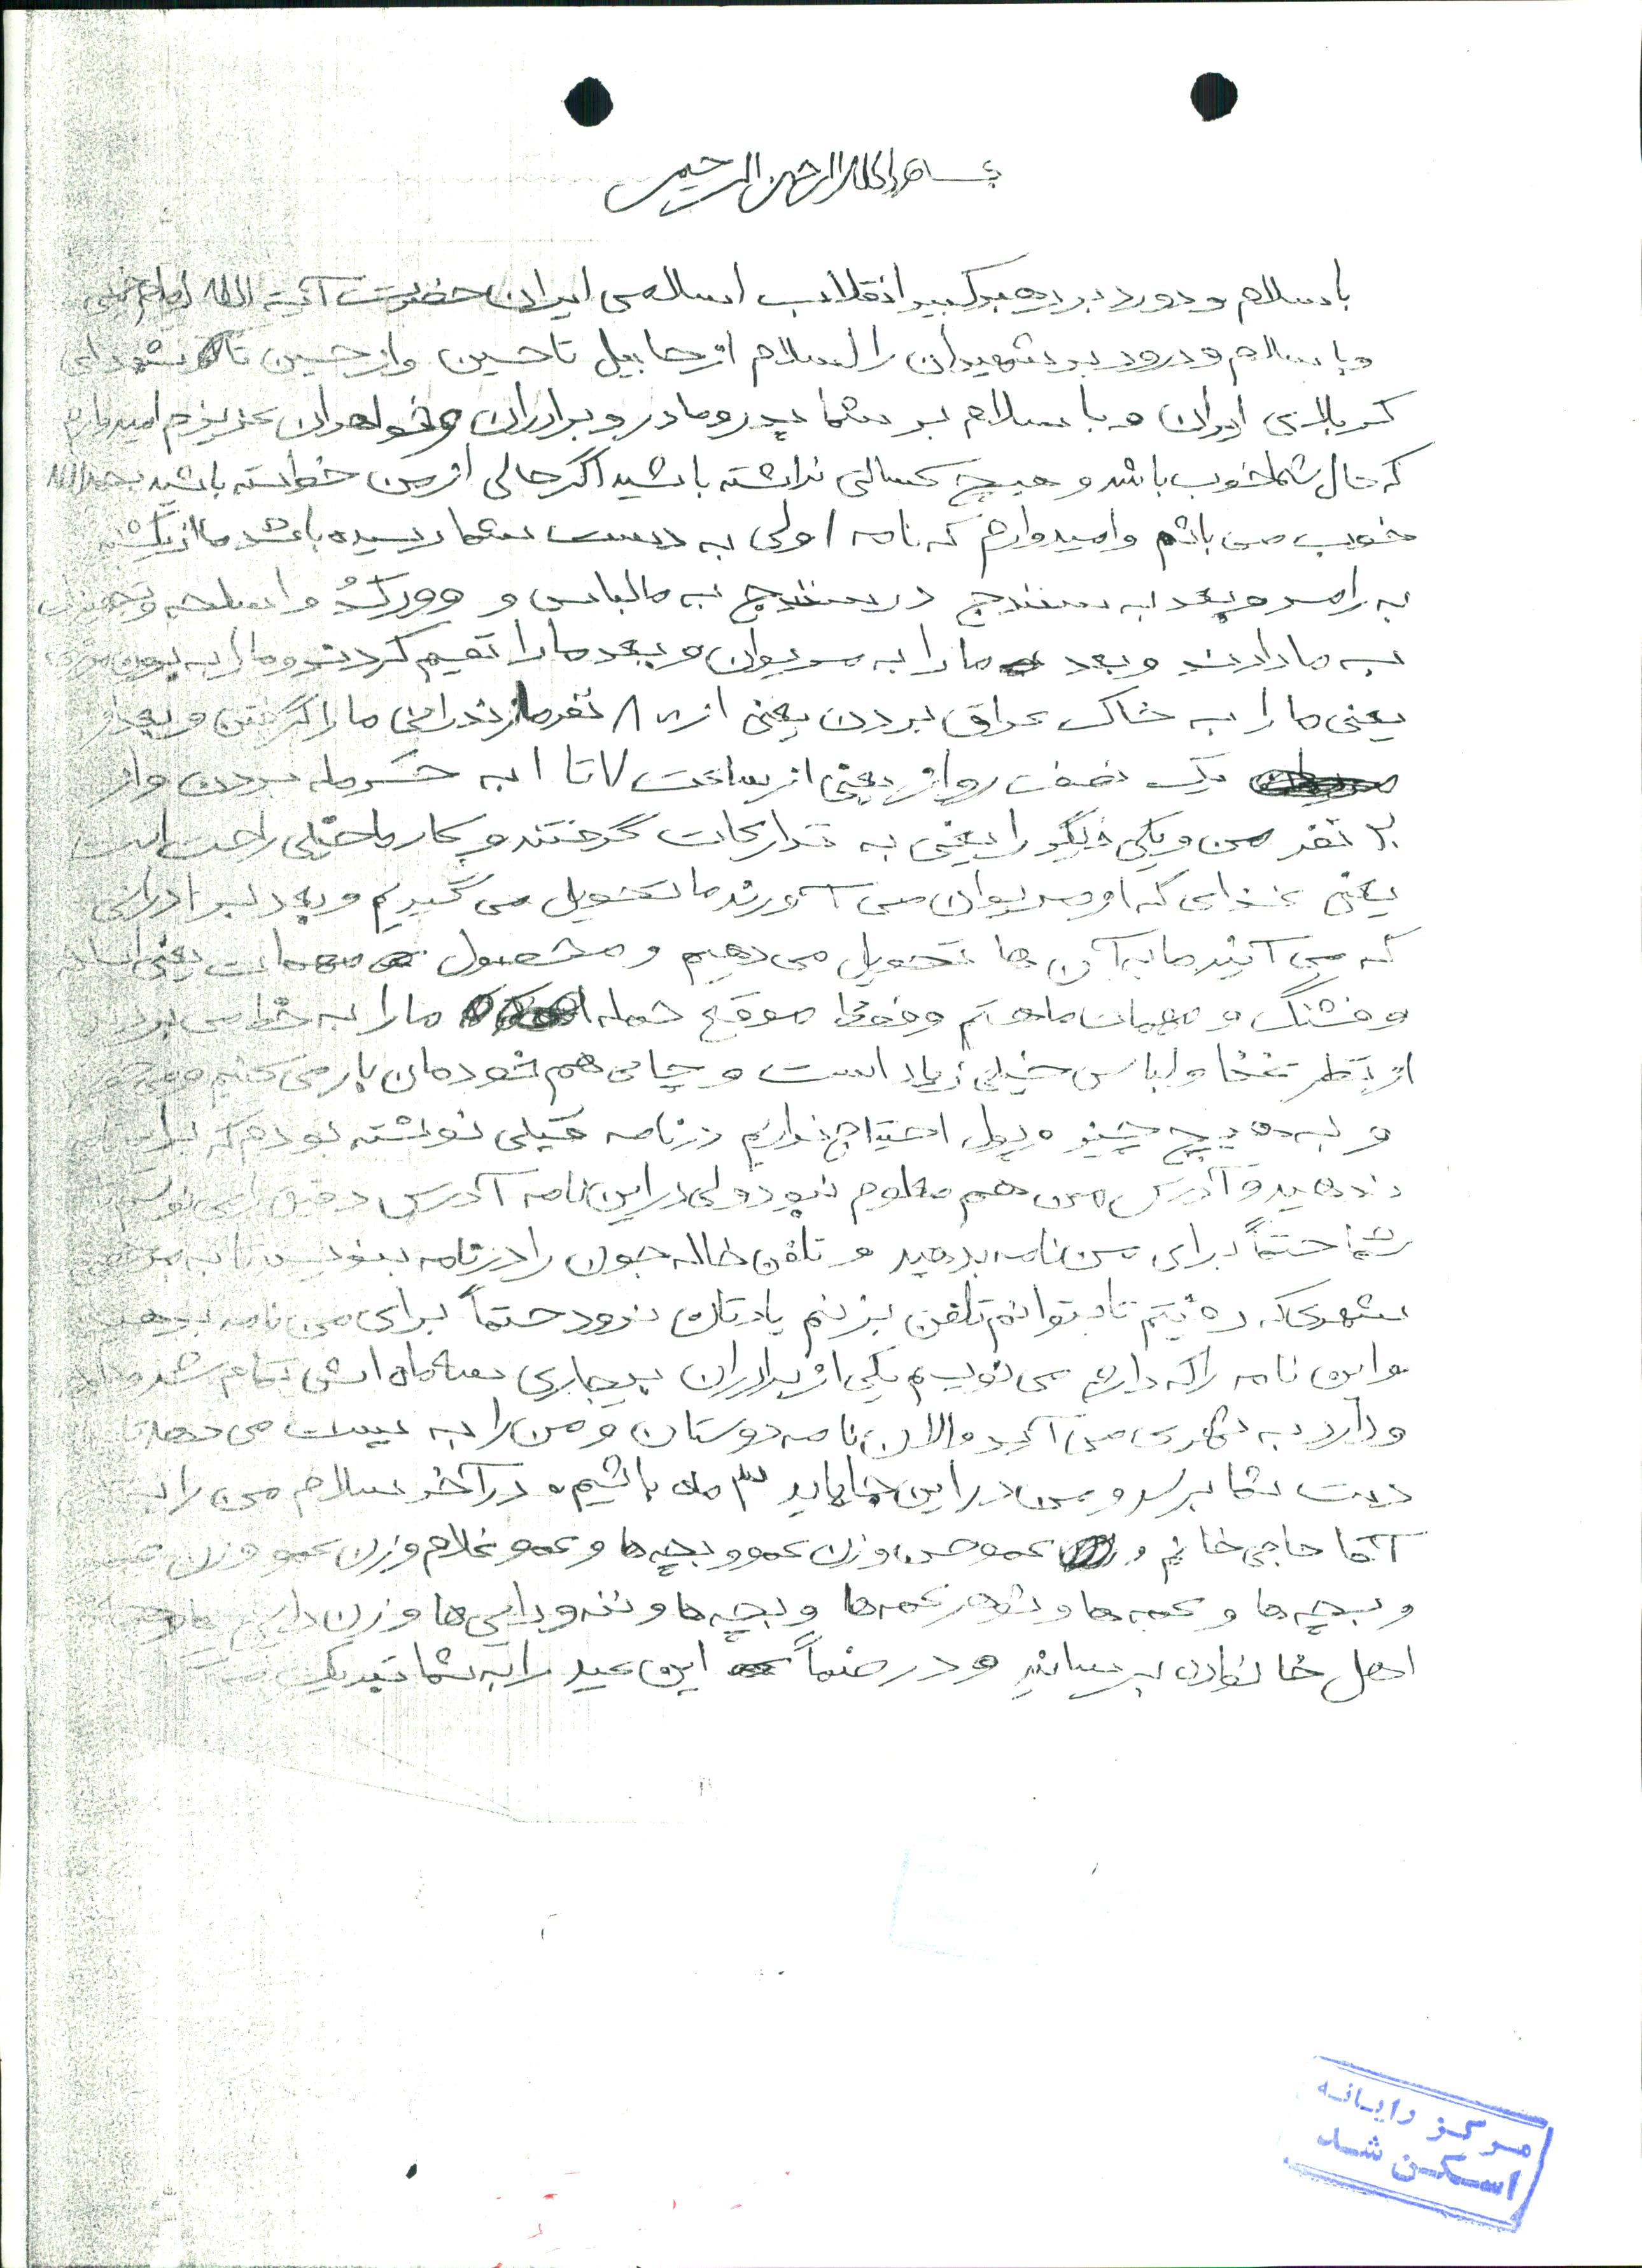 بسم الله الرحمن الرحیم
با سلام و دورد بر رهبر کبیر انقلاب اسلامی ایران حضرت آیت الله امام خمینی
و با سلام و درود بر شهیدان را السلام از حابیل تا حسین و از حسین تا شهدای
کربلای ایران و با سلام بر شما پدر و مادر و برادران و خواهران عزیزم امیدوارم
که حال شما خوب باشد و هیچ کسالتی نداشته باشید اگر حالی از من خواسته باشید بحمدالله
خوب می باشم و امیدوارم که نامه اولی به دست شما رسیده باشد ما از
به رامسر و بعد به سنندج در سنندج به ما لباس و و اسلحه و تجهیزات
به ما دادند و بعد ما را به مریوان و بعد ما را تقسیم کردند و ما را به
یعنی ما را به خاک عراق بردن یعنی از ۸۰ نفر مازندرانی ما را گرفتن و بعد از
یک نصف روز یعنی از ساعت ۷ تا ۱ به خرمله بردن و از
۲ نفر من و یکی دیگر را یعنی به تدارکات گرفتند و کار ما خیلی راحت است
یعنی غذای که از مریوان می آورند ما تحویل می گیریم و بعد برادرانی
که می آیند ما به آن ها تحویل می دهیم و مسئول مهمات یعنی اسلحه
و فشنگ و مهمات ما هستم و فقط موقع حمله ما را به خط می برند
از نظر غذا و لباس خیلی زیاد است و چایی هم خودمان بار می کنیم
و به هیچ چیز و پول احتیاج ندارم در نامه قبلی نوشته بودم که برای
ندهید و آدرس من هم معلوم نبود ولی در این نامه آدرس دقیق را می نویسم
شما حتماً برای من نامه بدهید و تلفن خاله جون را در نامه بنویسید تا به
شهری که رفتیم تا بتوانم تلفن بزنم یادتان نرود حتماً برای من نامه بدهید
و این نامه را که دارم می نویسم یکی از برادران بیجاری سه ماه اش تمام شده
و دارد به شهری می آید و الان نامه دوستان و من را به پست می دهد تا
دست شما برسد و من در این جا باید ۳ ماه باشیم و در آخر سلام من را به
آقا حاجی خانم و عمو حسن و زن عمو و بچه ها و عمو غلام و زن عمو و زن
و بچه ها و عمه ها و شوهر عمه ها و بچه ها و ننه و دایی ها و زن دایی ها
اهل خانواده برسانید و در ضمناً این عید را به شما تبریک
مرکز رایانه
اسکن شد